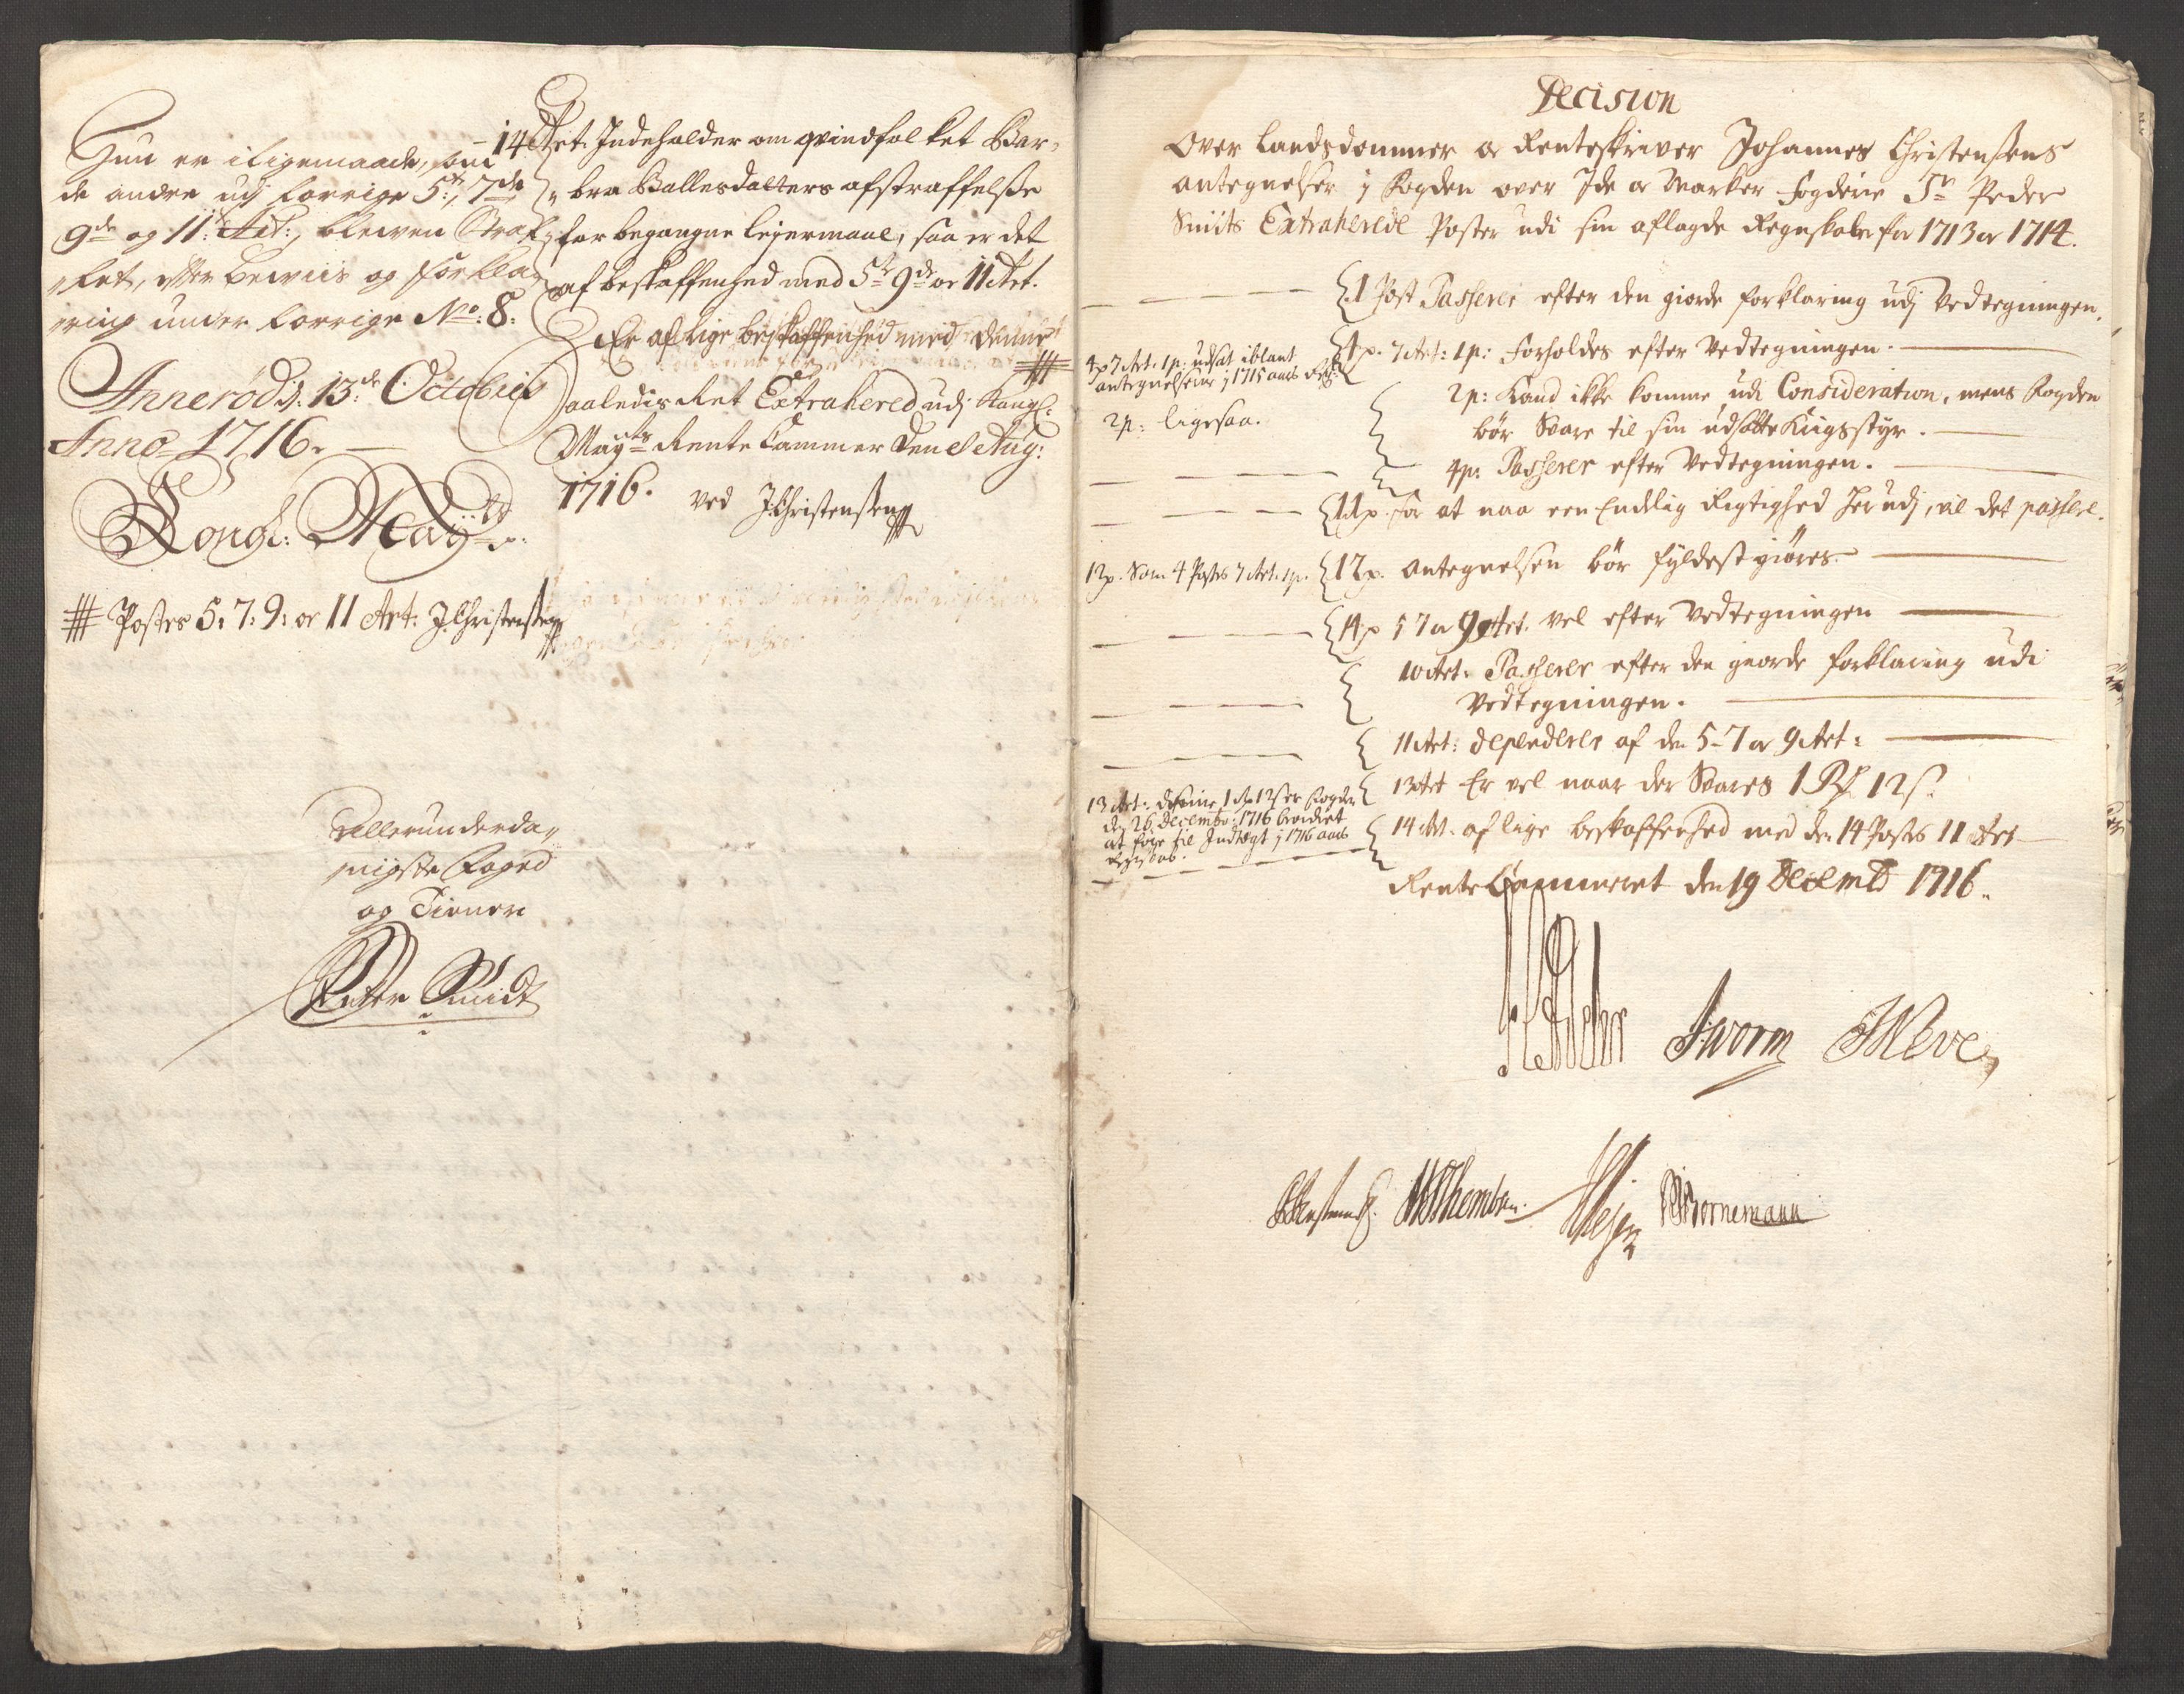 Hun er i ligemaade, som
de andre udj forrige 5te, 7de
9de og 11te Art:, bleven Straf-
fet, efter beviis og forkla-
ring under forrige No: 8:
Annerød d: 13de Octobris
Anno 1716.
Kongl: Mayts
# Postes 5: 7: 9: or 11 Art: J:Christensen
Allerunderda-
nigste Foged
og Tiener
Peter Smidt
14 Art. Indeholder om qvindfolket Bar-
bra Ballesdatters afstraffelse
for begangne lejermaal, saa er det
af beskaffenhed med 5te 9de or 11 Art.
Er af lige beskaffenhed med denne
#
Saaledis Ret Extrahered udj Kongl:
Mayts Rente Cammer den Aug:
1716. ved J:Christensen
Decision
Over Landsdommer or Renteskriver Johannes Christensens
antegnelser j Fogden over Ide or Marker Fogderie Sr Peder
Smidts Extraherede Poster udi sin aflagde Regnskaber for 1713 or 1714.
1 Post Passerer efter den giorde forklaring udj Vedtegningen.
4p 7 Art. 1p: udsat iblant
antegnelserne j 1715 aars
4p. 7 Art: 1p: Forholdes efter Vedtegningen.
2p: ligesaa.
2p: Kand ikke komme udi Consideration, mens Fogden
bør Svare til sin udsatte Krigsstyr.
4p: Passerer efter Vedtegningen.
11p. For at naa een Endelig Rigtighed her udj, vil det passere.
12p. Som 4 Postes 7 Art. 1p.
12p. Antegnelsen bør fyldestgiøres.
14p 5 7 or 9 Art. vel efter Vedtegningen
10 Art. Passerer efter den giorde forklaring udi
Vedtegningen.
11 Art: dependerer af den 5-7 or 9 Art:
13 Art: denne 1 Rd 12 s er Fogden
den 26 Decembr: 1716
at føre til Indtægt j 1716 aars
Regnskab.
13 Art Er vel naar der Svares 1 Rd 12 s.
14 Art. af lige beskaffenhed med den 14 Postes 11 Art
Rente Cammeret den 19 Decemb 1716.
Worm
Bornemann